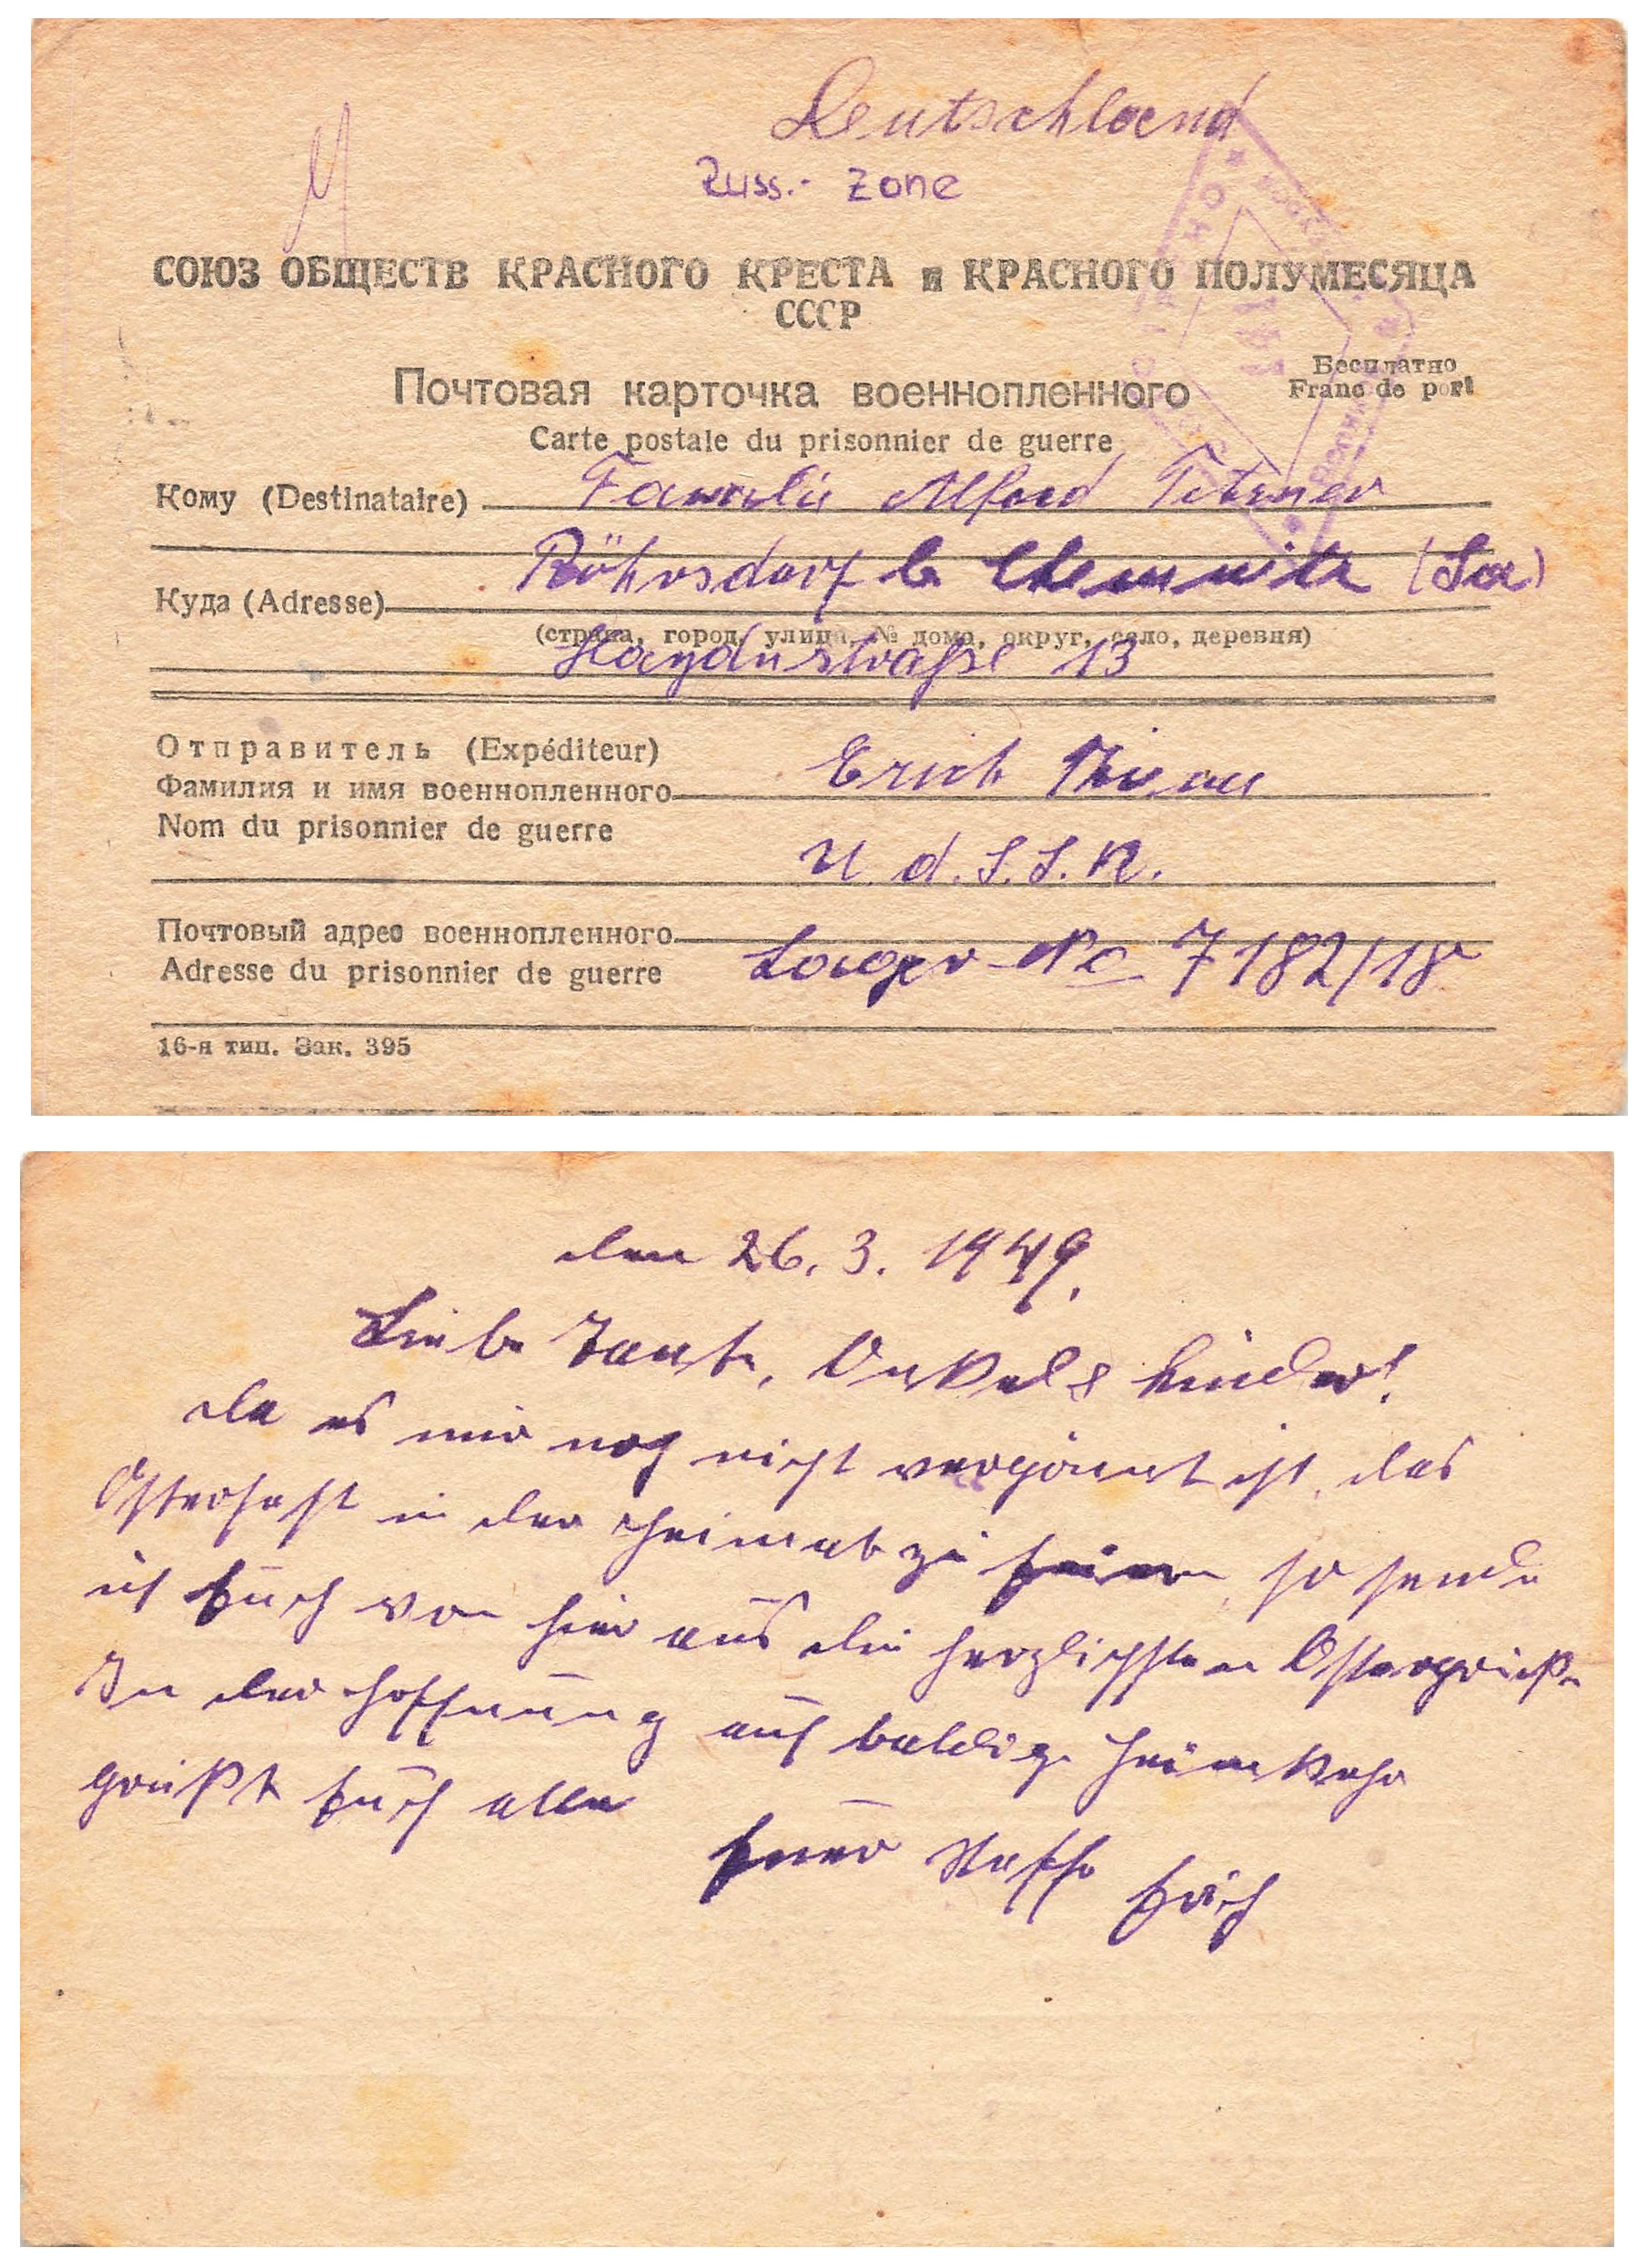 Deutschland
Russ.- Zone
СОЮЗ ОБЩЕСТВ КРАСНОГО КРЕСТА и КРАСНОГО ПОЛУМЕСЯЦА
СССР
Бесплатно
Franc de port
Почтовая карточка военнопленного
Carte postale du prisonnier de guerre
Кому (Destinataire) Familie Alfred
Röhrsdorf b Chemnitz (Sa)
Куда (Adresse)
(страна, город, улица, № дома, округ, село, деревня)
Haydnstraße 13
Отправитель (Expéditeur)
Фамилия и имя военнопленного Erich
Nom du prisonnier de guerre
U. d. S. S. R.
Почтовый адрес военнопленного
Adresse du prisonnier de guerre Lager No 7182/18
16-я тип. Зак. 395
den 26. 3. 1949.
Liebe Tante, Onkel & Kinder!
Da es mir noch nicht vergönnt ist, das
Osterfest in der Heimat zu feiern, so sende
ich Euch von hier aus die herzlichsten Ostergrüße
In der Hoffnung auf baldige Heimkehr
grüßt Euch alle
Euer Neffe Erich